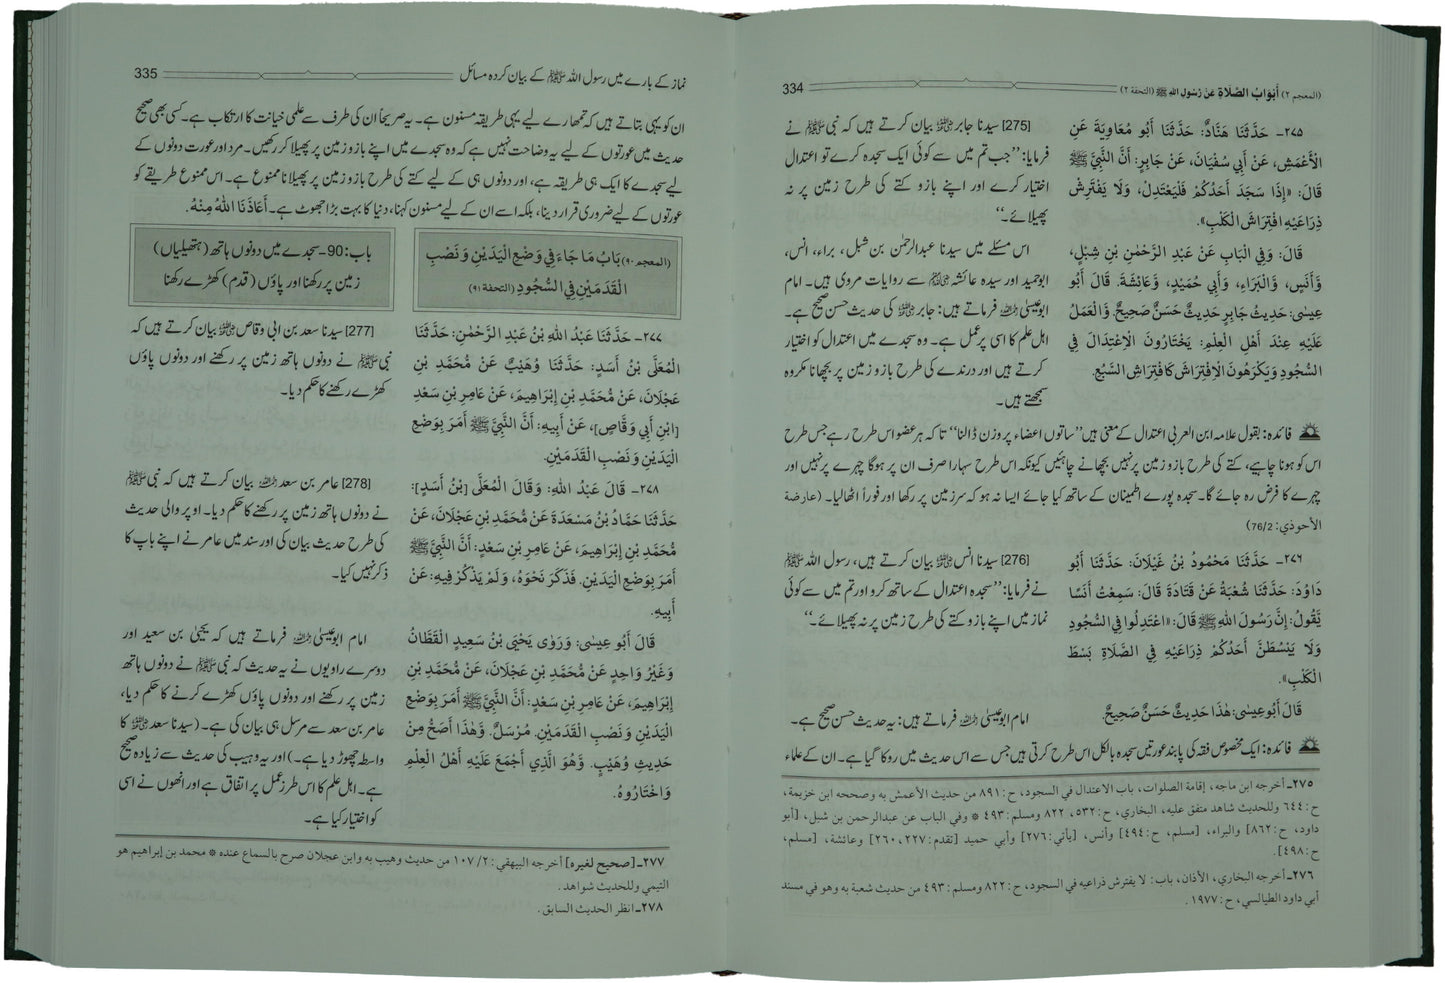 (المعجم ٢) أَبْوَابُ الصَّلَاةِ عَنْ رَسُولِ اللهِ ﷺ (التحفة ٢)
334
٢٧٥- حَدَّثَنَا هَنَّادٌ: حَدَّثَنَا أَبُو مُعَاوِيَةَ عَنِ
الْأَعْمَشِ، عَنْ أَبِي سُفْيَانَ، عَنْ جَابِرٍ: أَنَّ النَّبِيَّ ﷺ
قَالَ: «إِذَا سَجَدَ أَحَدُكُمْ فَلْيَعْتَدِلْ، وَلَا يَفْتَرِشْ
ذِرَاعَيْهِ افْتِرَاشَ الْكَلْبِ».
قَالَ: وَفِي الْبَابِ عَنْ عَبْدِ الرَّحْمٰنِ بْنِ شِبْلٍ،
وَّأَنَسٍ، وَالْبَرَاءِ، وَأَبِي حُمَيْدٍ، وَعَائِشَةَ. قَالَ أَبُو
عِيسٰى: حَدِيثُ جَابِرٍ حَدِيثٌ حَسَنٌ صَحِيحٌ. وَالْعَمَلُ
عَلَيْهِ عِنْدَ أَهْلِ الْعِلْمِ: يَخْتَارُونَ الْاِعْتِدَالَ فِي
السُّجُودِ وَيَكْرَهُونَ الْاِفْتِرَاشَ كَافْتِرَاشِ السَّبُعِ.
[275] سیدنا جابر رضی اللہ عنہ بیان کرتے ہیں کہ نبی ﷺ نے
فرمایا: ’’جب تم میں سے کوئی ایک سجدہ کرے تو اعتدال
اختیار کرے اور اپنے بازو کتے کی طرح زمین پر نہ
پھیلائے۔‘‘
اس مسئلے میں سیدنا عبدالرحمٰن بن شبل، براء، انس،
ابوحمید اور سیدہ عائشہ رضی اللہ عنہم سے روایات مروی ہیں۔ امام
ابوعیسیٰ رحمہ اللہ فرماتے ہیں: جابر رضی اللہ عنہ کی حدیث حسن صحیح ہے۔
اہل علم کا اسی پر عمل ہے۔ وہ سجدے میں اعتدال کو اختیار
کرتے ہیں اور درندے کی طرح بازو زمین پر بچھانا مکروہ
سمجھتے ہیں۔
فائدہ: بقول علامہ ابن العربی اعتدال کے معنی ہیں ’’ساتوں اعضاء پر وزن ڈالنا‘‘ تاکہ ہر عضو اس طرح رہے جس طرح
اس کو ہونا چاہیے، کتے کی طرح بازو زمین پر نہیں بچھانے چاہئیں کیونکہ اس طرح سہارا صرف ان پر ہوگا چہرے پر نہیں اور
چہرے کا فرض رہ جائے گا۔ سجدہ پورے اطمینان کے ساتھ کیا جائے ایسا نہ ہو کہ سر زمین پر رکھا اور فوراً اٹھالیا۔ (عارضة
الأحوذي: 76/2)
٢٧٦- حَدَّثَنَا مَحْمُودُ بْنُ غَيْلَانَ: حَدَّثَنَا أَبُو
دَاوُدَ: حَدَّثَنَا شُعْبَةُ عَنْ قَتَادَةَ قَالَ: سَمِعْتُ أَنَسًا
يَّقُولُ: إِنَّ رَسُولَ اللهِ ﷺ قَالَ: «اعْتَدِلُوا فِي السُّجُودِ
وَلَا يَبْسُطَنَّ أَحَدُكُمْ ذِرَاعَيْهِ فِي الصَّلَاةِ بَسْطَ
الْكَلْبِ».
قَالَ أَبُو عِيسٰى: هٰذَا حَدِيثٌ حَسَنٌ صَحِيحٌ.
[276] سیدنا انس رضی اللہ عنہ بیان کرتے ہیں، رسول اللہ ﷺ
نے فرمایا: ’’سجدہ اعتدال کے ساتھ کرو اور تم میں سے کوئی
نماز میں اپنے بازو کتے کی طرح زمین پر نہ پھیلائے۔‘‘
امام ابوعیسیٰ رحمہ اللہ فرماتے ہیں: یہ حدیث حسن صحیح ہے۔
فائدہ: ایک مخصوص فقہ کی پابند عورتیں سجدہ بالکل اس طرح کرتی ہیں جس سے اس حدیث میں روکا گیا ہے۔ ان کے علماء
٢٧٥- أخرجه ابن ماجه، إقامة الصلوات، باب الاعتدال في السجود، ح: ٨٩١ من حديث الأعمش به وصححه ابن خزيمة،
ح: ٦٤٤ وللحديث شاهد متفق عليه، البخاري، ح: ٥٣٢، ٨٢٢ ومسلم: ٤٩٣ * وفي الباب عن عبدالرحمن بن شبل، [أبو
داود، ح: ٨٦٢] والبراء، [مسلم، ح: ٤٩٤] وأنس، [يأتي: ٢٧٦] وأبي حميد [تقدم: ٢٢٧، ٢٦٠] وعائشة، [مسلم،
ح: ٤٩٨].
٢٧٦- أخرجه البخاري، الأذان، باب: لا يفترش ذراعيه في السجود، ح: ٨٢٢ ومسلم: ٤٩٣ من حديث شعبة به وهو في مسند
أبي داود الطيالسي، ح: ١٩٧٧.
نماز کے بارے میں رسول اللہ ﷺ کے بیان کردہ مسائل
335
ان کو یہی بتاتے ہیں کہ تمھارے لیے یہی طریقہ مسنون ہے۔ یہ صریحاً ان کی طرف سے علمی خیانت کا ارتکاب ہے۔ کسی بھی صحیح
حدیث میں عورتوں کے لیے یہ وضاحت نہیں ہے کہ وہ سجدے میں اپنے بازو زمین پر پھیلا کر رکھیں۔ مرد اور عورت دونوں کے
لیے سجدے کا ایک ہی طریقہ ہے، اور دونوں ہی کے لیے کتے کی طرح بازو زمین پر پھیلانا ممنوع ہے۔ اس ممنوع طریقے کو
عورتوں کے لیے ضروری قرار دینا، بلکہ اسے ان کے لیے مسنون کہنا، دنیا کا بہت بڑا جھوٹ ہے۔ أَعَاذَنَا اللهُ مِنْهُ.
(المعجم ٩٠) بَابُ مَا جَاءَ فِي وَضْعِ الْيَدَيْنِ وَنَصْبِ
الْقَدَمَيْنِ فِي السُّجُودِ (التحفة ٩١)
باب: 90- سجدے میں دونوں ہاتھ (ہتھیلیاں)
زمین پر رکھنا اور پاؤں (قدم) کھڑے رکھنا
٢٧٧- حَدَّثَنَا عَبْدُ اللهِ بْنُ عَبْدِ الرَّحْمٰنِ: حَدَّثَنَا
الْمُعَلَّى بْنُ أَسَدٍ: حَدَّثَنَا وُهَيْبٌ عَنْ مُّحَمَّدِ بْنِ
عَجْلَانَ، عَنْ مُّحَمَّدِ بْنِ إِبْرَاهِيمَ، عَنْ عَامِرِ بْنِ سَعْدِ
[ابْنِ أَبِي وَقَّاصٍ]، عَنْ أَبِيهِ: أَنَّ النَّبِيَّ ﷺ أَمَرَ بِوَضْعِ
الْيَدَيْنِ وَنَصْبِ الْقَدَمَيْنِ.
٢٧٨- قَالَ عَبْدُ اللهِ: وَقَالَ الْمُعَلَّى [بْنُ أَسَدٍ]:
حَدَّثَنَا حَمَّادُ بْنُ مَسْعَدَةَ عَنْ مُّحَمَّدِ بْنِ عَجْلَانَ، عَنْ
مُّحَمَّدِ بْنِ إِبْرَاهِيمَ، عَنْ عَامِرِ بْنِ سَعْدٍ: أَنَّ النَّبِيَّ ﷺ
أَمَرَ بِوَضْعِ الْيَدَيْنِ. فَذَكَرَ نَحْوَهُ، وَلَمْ يَذْكُرْ فِيهِ: عَنْ
أَبِيهِ.
قَالَ أَبُو عِيسٰى: وَرَوٰى يَحْيَى بْنُ سَعِيدٍ الْقَطَّانُ
وَغَيْرُ وَاحِدٍ عَنْ مُّحَمَّدِ بْنِ عَجْلَانَ، عَنْ مُّحَمَّدِ بْنِ
إِبْرَاهِيمَ، عَنْ عَامِرِ بْنِ سَعْدٍ: أَنَّ النَّبِيَّ ﷺ أَمَرَ بِوَضْعِ
الْيَدَيْنِ وَنَصْبِ الْقَدَمَيْنِ. مُرْسَلٌ. وَّهٰذَا أَصَحُّ مِنْ
حَدِيثِ وُهَيْبٍ. وَّهُوَ الَّذِي أَجْمَعَ عَلَيْهِ أَهْلُ الْعِلْمِ
وَاخْتَارُوهُ.
[277] سیدنا سعد بن ابی وقاص رضی اللہ عنہ بیان کرتے ہیں کہ
نبی ﷺ نے دونوں ہاتھ زمین پر رکھنے اور دونوں پاؤں
کھڑے رکھنے کا حکم دیا۔
[278] عامر بن سعد رحمہ اللہ بیان کرتے ہیں کہ نبی ﷺ
نے دونوں ہاتھ زمین پر رکھنے کا حکم دیا۔ اوپر والی حدیث
کی طرح حدیث بیان کی اور سند میں عامر نے اپنے باپ کا
ذکر نہیں کیا۔
امام ابوعیسیٰ رحمہ اللہ فرماتے ہیں کہ یحییٰ بن سعید اور
دوسرے راویوں نے یہ حدیث کہ نبی ﷺ نے دونوں ہاتھ
زمین پر رکھنے اور دونوں پاؤں کھڑے کرنے کا حکم دیا،
عامر بن سعد سے مرسل ہی بیان کی ہے۔ (سیدنا سعد رضی اللہ عنہ کا
واسطہ چھوڑ دیا ہے۔) اور یہ وہیب کی حدیث سے زیادہ صحیح
ہے۔ اہل علم کا اس طرز عمل پر اتفاق ہے اور انھوں نے اسی
کو اختیار کیا ہے۔
٢٧٧- [صحيح لغيره] أخرجه البيهقي: ٢/ ١٠٧ من حديث وهيب به وابن عجلان صرح بالسماع عنده * محمد بن إبراهيم هو
التيمي وللحديث شواهد.
٢٧٨- انظر الحديث السابق.